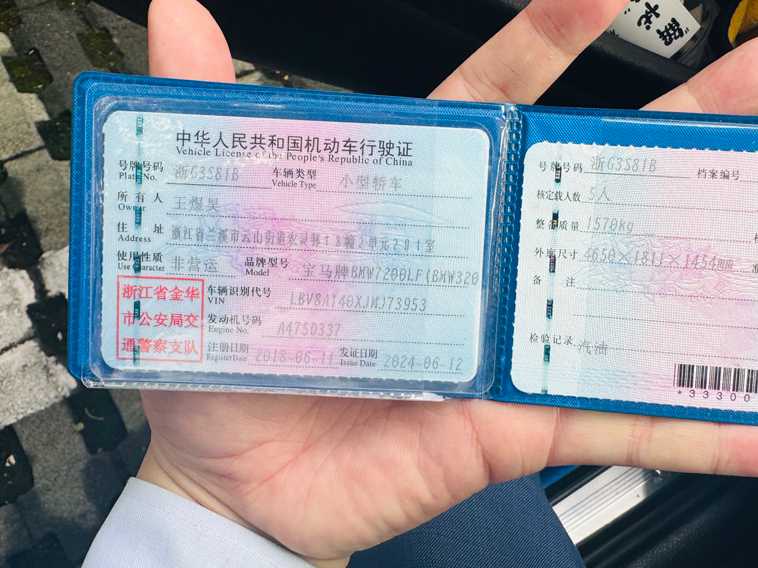 中华人民共和国机动车行驶证
Vehicle License of the People's Republic of China
号牌号码 浙G3S81B 车辆类型 小型轿车
Plate No. Vehicle Type
所有人 王煜昊
Owner
住址 浙江省兰溪市云山街道水灵郡18幢2单元201室
Address
使用性质 非营运 品牌型号 宝马牌BMW7200LF(BMW320
Use Character Model
浙江省金华
市公安局交
通警察支队
车辆识别代号 LBV8A140XJMJ73953
VIN
发动机号码 A475D337
Engine No.
注册日期 2018-06-11 发证日期 2024-06-12
Register Date Issue Date
号牌号码 浙G3S81B 档案编号
核定载人数 5人
整备质量 1570kg
外廓尺寸 4650×1811×1454mm
备注
检验记录 汽油
*33300